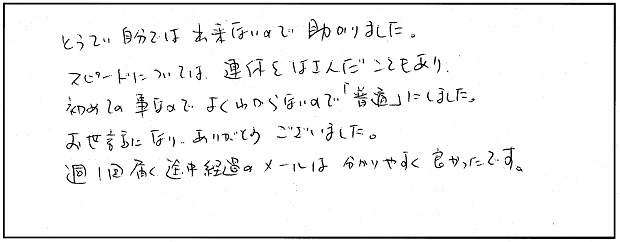 とうてい自分では出来ないので助かりました。
スピードについては、連休をはさんだこともあり、
初めての事なのでよく分からないので「普通」にしました。
お世話になり、ありがとうございました。
週1回届く途中経過のメールは分かりやすく良かったです。